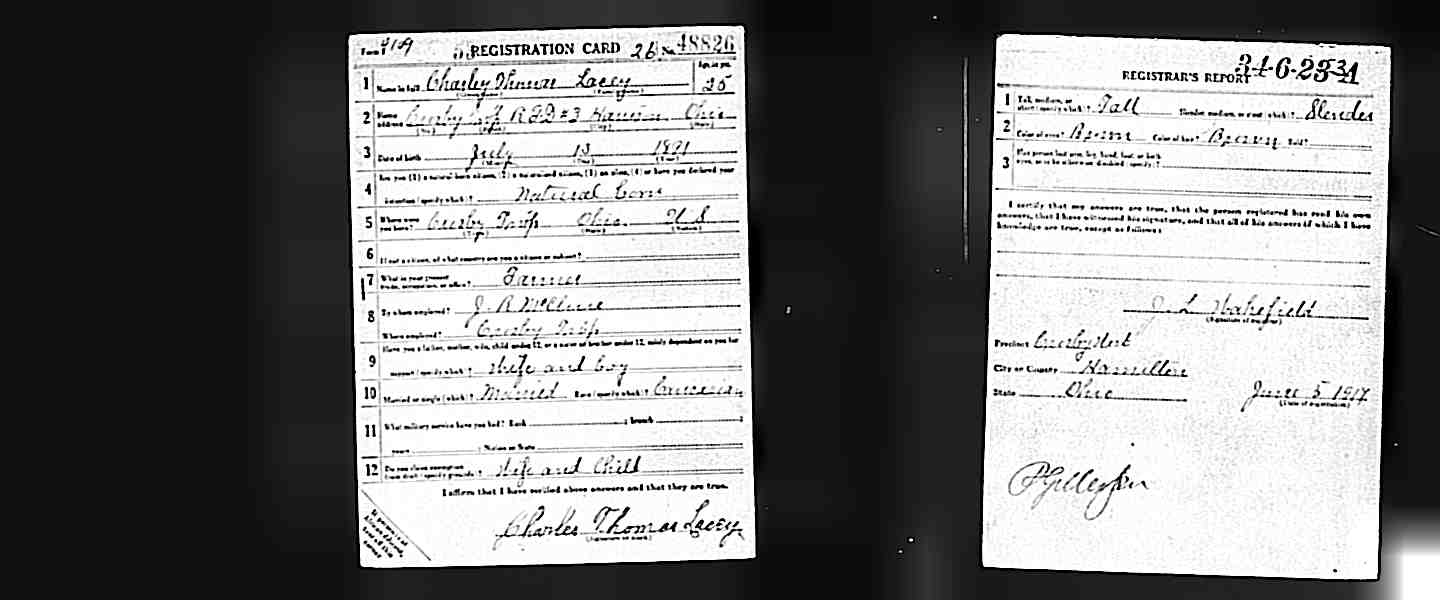 Form 1 4109 53 REGISTRATION CARD 26 No. 48826
1 Name in full Charley Thomas Lacey Age, in yrs. 25
(Given name) (Family name)
2 Home address Crosby Twp R.F.D #3 Harrison Ohio
(No.) (Street) (City) (State)
3 Date of birth July 13 1891
(Month) (Day) (Year)
4 Are you (1) a natural-born citizen, (2) a naturalized citizen, (3) an alien, (4) or have you declared your
intention (specify which)? Natural born
5 Where were you born? Crosby Twp Ohio U S
(Town) (State) (Nation)
6 If not a citizen, of what country are you a citizen or subject?
7 What is your present trade, occupation, or office? Farmer
8 By whom employed? J. R McClure
Where employed? Crosby Twp
9 Have you a father, mother, wife, child under 12, or a sister or brother under 12, solely dependent on you for
support (specify which)? Wife and boy
10 Married or single (which)? Married Race (specify which)? Caucasian
11 What military service have you had? Rank ; branch ;
years ; Nation or State
12 Do you claim exemption from draft (specify grounds)? Wife and Child
I affirm that I have verified above answers and that they are true.
Charles Thomas Lacey
(Signature or mark)
34-6-23-31
REGISTRAR'S REPORT
1 Tall, medium, or short (specify which)? Tall Slender, medium, or stout (which)? Slender
2 Color of eyes? Brown Color of hair? Brown Bald?
3 Has person lost arm, leg, hand, foot, or both
eyes, or is he otherwise disabled (specify)?
I certify that my answers are true, that the person registered has read his own
answers, that I have witnessed his signature, and that all of his answers of which I have
knowledge are true, except as follows:
J. L Wakefield
(Signature of registrar)
Precinct Crosby West
City or County Hamilton
State Ohio June 5 1917
(Date of registration)